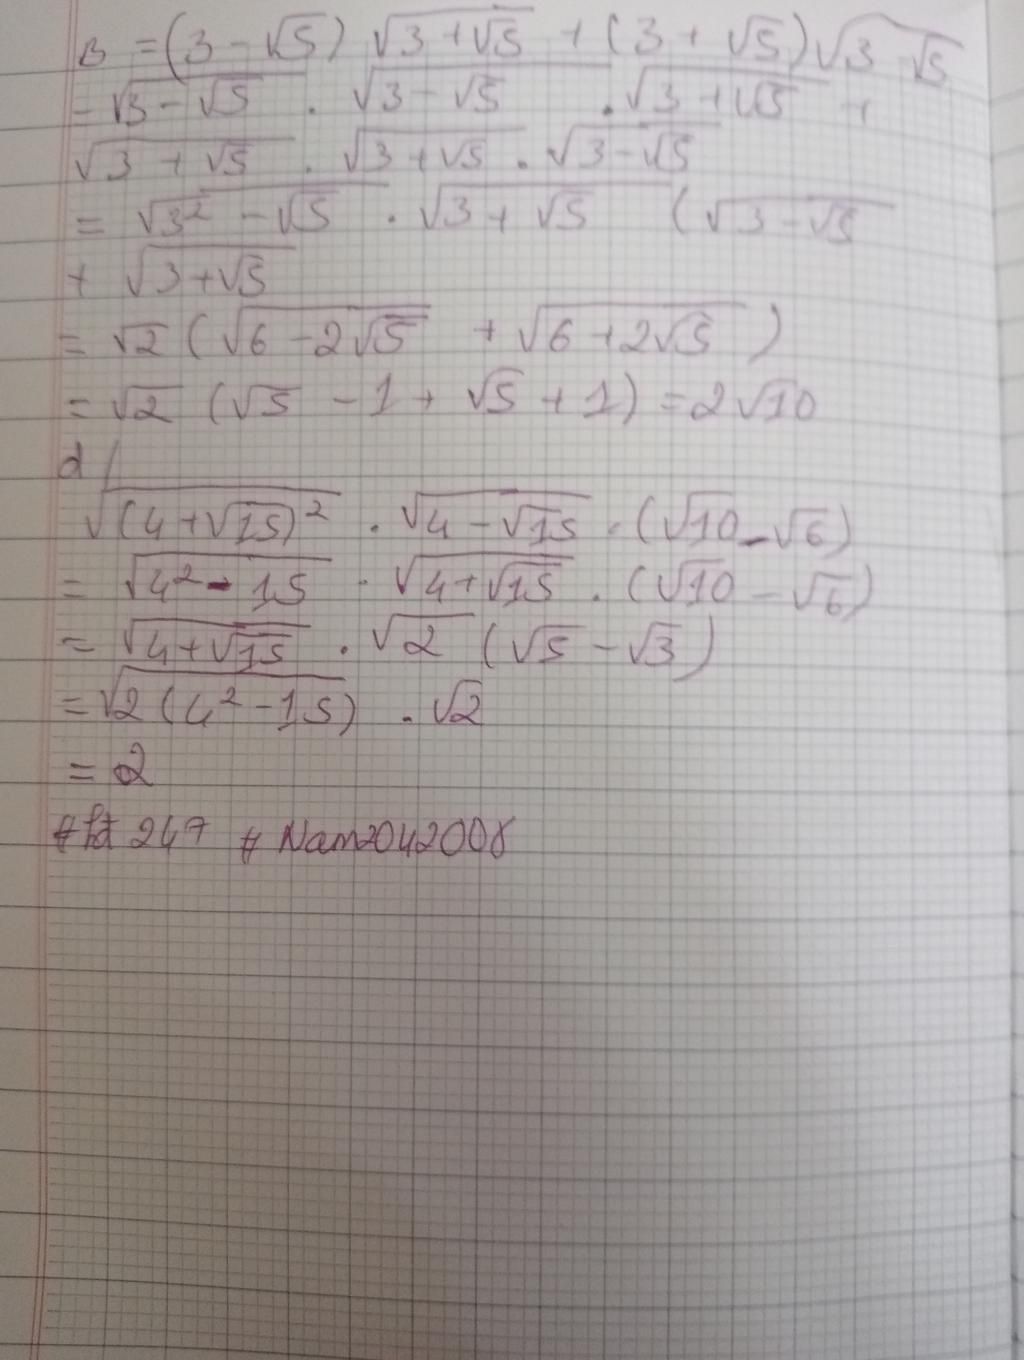 B = (3 - √5) √(3 + √5) + (3 + √5) √(3 - √5)
= √(3 - √5) . √(3 - √5) . √(3 + √5) +
√(3 + √5) . √(3 + √5) . √(3 - √5)
= √(3² - √5) . √(3 + √5) (√(3 - √5)
+ √(3 + √5)
= √2 (√(6 - 2√5) + √(6 + 2√5))
= √2 (√5 - 1 + √5 + 1) = 2√10
d/
√((4 + √15)²) . √(4 - √15) . (√10 - √6)
= √(4² - 15) . √(4 + √15) . (√10 - √6)
= √(4 + √15) . √2 (√5 - √3)
= √(2(4² - 15)) . √2
= 2
247 # Nam2042008